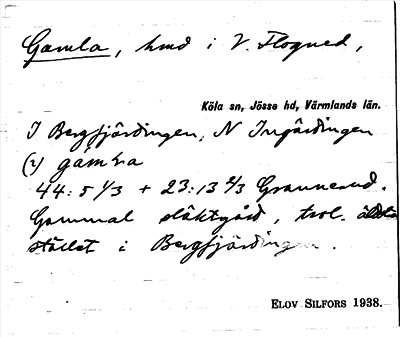 Gamla, hmd i V. Flogned,
Köla sn, Jösse hd, Värmlands län.
I Bergfjärdingen, N Ingärdingen
(2) gámla
44:5 1/3 + 23:13 2/3 Grannerud.
Gammal släktgård, trol. äldsta
stället i Bergfjärdingen.
ELOV SILFORS 1938.